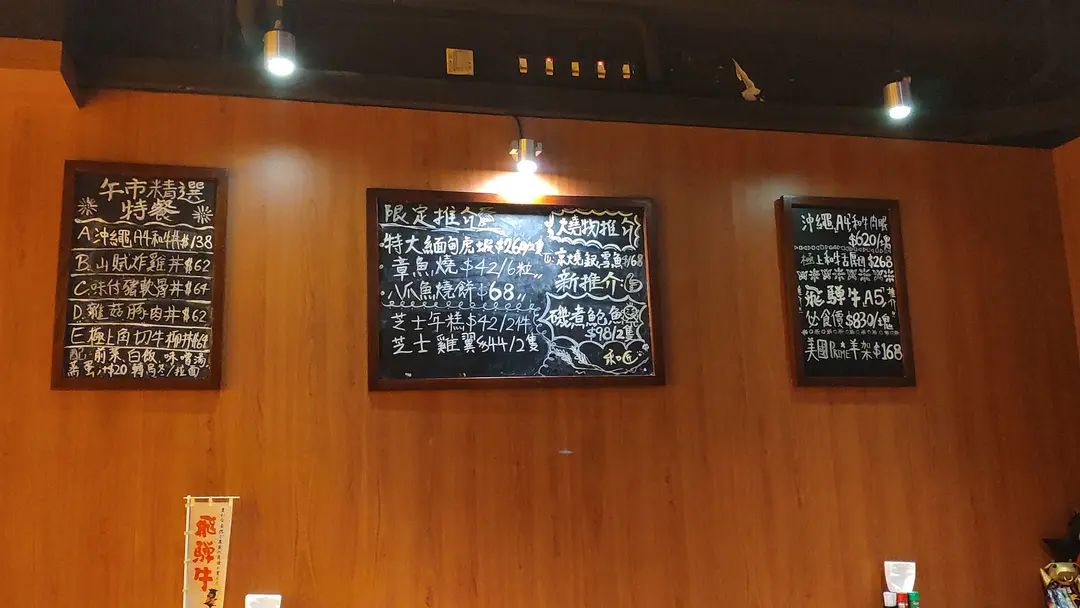 午市精選
特餐
A.沖繩A4和牛丼$138
B.山賊炸雞丼$62
C.味付豬軟骨丼$64
D.雞菇豚肉丼$62
E.極上角切牛柳丼$64
配前菜白飯味噌湯
$20轉烏冬/拉面
限定推介
特大緬甸虎蝦$26
章魚燒$42/6粒
八爪魚燒餅$68
芝士年糕$42/2件
芝士雞翼$44/2隻
火燒物推介
京燒銀雪魚$168
新推介:
磯煮鮑魚
$98/2隻
沖繩A4和牛肉眼
$620/
極上和牛舌 $268
飛騨牛A5
飲食價$830/塊
推介
美國PRIME羊架$168
飛騨牛